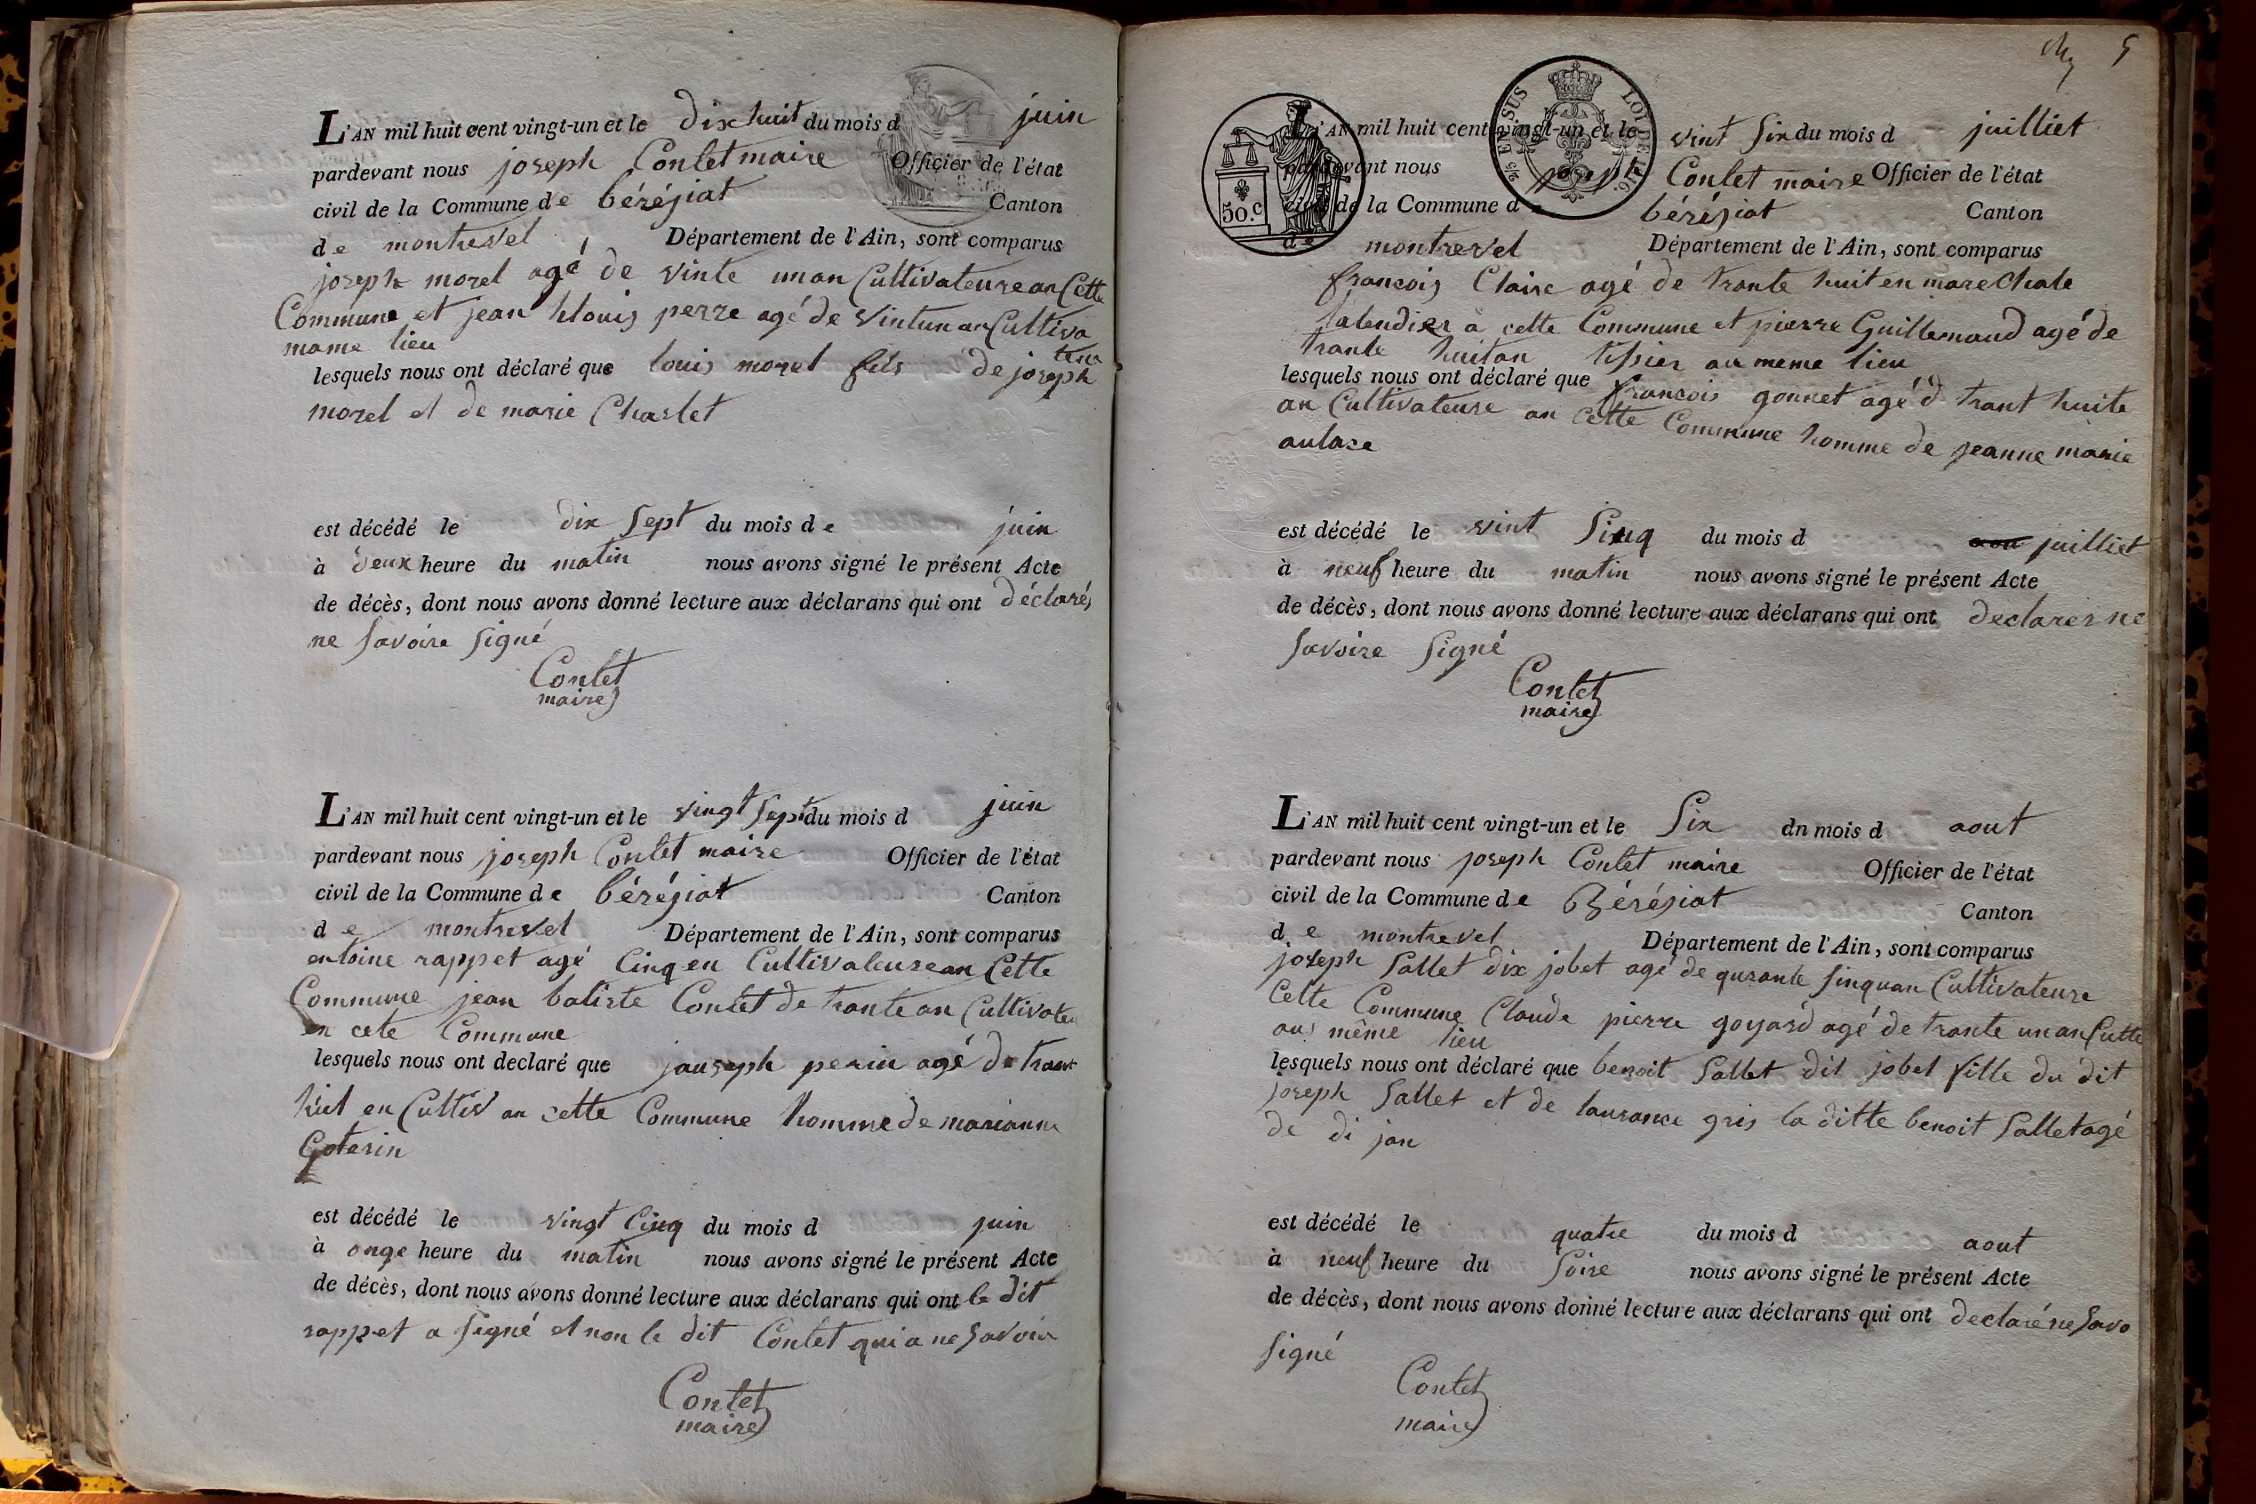 L'AN mil huit cent vingt-un et le dix huit du mois d juin
pardevant nous joseph Contet maire Officier de l'état
civil de la Commune de béréziat Canton
de montrevel Département de l'Ain, sont comparus
joseph morel agé de vinte un an Cultivateure an Cette
Commune et jean klouis perre agé de vintun an Cultiva
teur
mame lieu
lesquels nous ont déclaré que louis morel fils de joseph
morel et de marie Charlet
est décédé le dix sept du mois de juin
à deux heure du matin nous avons signé le présent Acte
de décès, dont nous avons donné lecture aux déclarans qui ont déclarés
ne savoire signé
Contet
maire
L'AN mil huit cent vingt-un et le vingt sept du mois d juin
pardevant nous joseph Contet maire Officier de l'état
civil de la Commune de béréziat Canton
de montrevel Département de l'Ain, sont comparus
entoine rappet agé Cinq en Cultivateure an Cette
Commune jean batiste Contet de trante an Cultivateu
en cete Commune
lesquels nous ont declaré que jauseph perin agé de trant
huit en Cultiv an cette Commune homme de marianne
Goterin
est décédé le vingt Cinq du mois d juin
à onze heure du matin nous avons signé le présent Acte
de décès, dont nous avons donné lecture aux déclarans qui ont le dit
rappet a signé et non le dit Contet qui a ne savoir
Contet
maire
5
50.c
EN SUS LOI DE 1816
L'AN mil huit cent vingt-un et le vint six du mois d juilliet
pardevant nous joseph Contet maire Officier de l'état
civil de la Commune de béréziat Canton
de montrevel Département de l'Ain, sont comparus
francois Claire agé de trante huit en marechale
talendier à cette Commune et pierre Guillemaud agé de
trante huit an tissier au meme lieu
lesquels nous ont déclaré que francois gonnet agé d trant huite
an Cultivateure an cette Commune homme de jeanne marie
aulase
est décédé le vint sinq du mois d juilliet
à neuf heure du matin nous avons signé le présent Acte
de décès, dont nous avons donné lecture aux déclarans qui ont declares ne
savoire signé
Contet
maire
L'AN mil huit cent vingt-un et le six du mois d aout
pardevant nous joseph Contet maire Officier de l'état
civil de la Commune de Béréziat Canton
de montrevel Département de l'Ain, sont comparus
joseph sallet dix jobet agé de qurante sinquan Cultivateure
Cette Commune Claude pierre goyard agé de trante un an Cutte
aus même lieu
lesquels nous ont déclaré que benoit sallet dit jobet fille du dit
joseph sallet et de laurance gris la ditte benoit sallet agé
de di jan
est décédé le quatre du mois d aout
à neuf heure du soire nous avons signé le présent Acte
de décès, dont nous avons donné lecture aux déclarans qui ont declaré ne savo
signé
Contet
maire